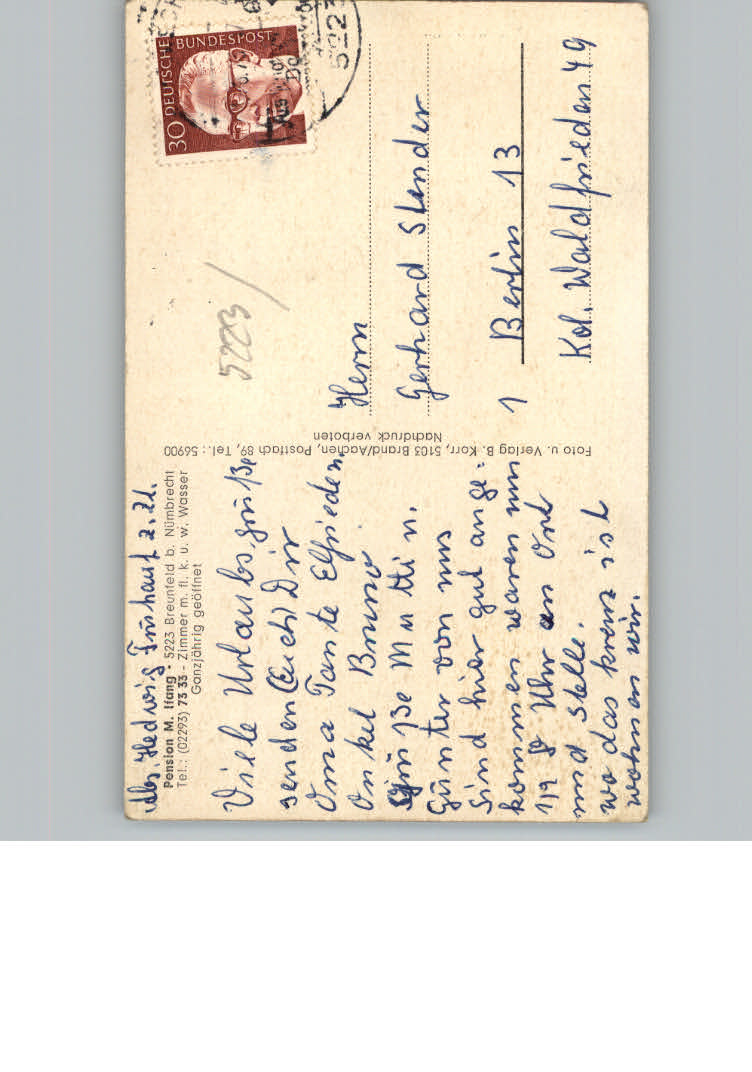 Abs. Hedwig z. Zt.
Pension M. Ifang - 5223 Breunfeld b. Nümbrecht
Tel.: (02293) 73 33 - Zimmer m. fl. k. u. w. Wasser
Ganzjährig geöffnet
Viele Urlaubsgrüße
senden (Euch) Dir
Oma Tante Elfrieden
Onkel Bruno.
Grüße Mutti u.
Günter von uns
Sind hier gut ange-
kommen waren um
1/2 8 Uhr an Ort
und Stelle.
wo das kreuz ist
wohnen wir.
Foto u. Verlag B. Korr, 5103 Brand/Aachen, Postfach 89, Tel.: 56900
Nachdruck verboten
30 DEUTSCHE BUNDESPOST
5223
5223
Herrn
Gerhard Stender
1 Berlin 13
Kol. Waldfrieden 49